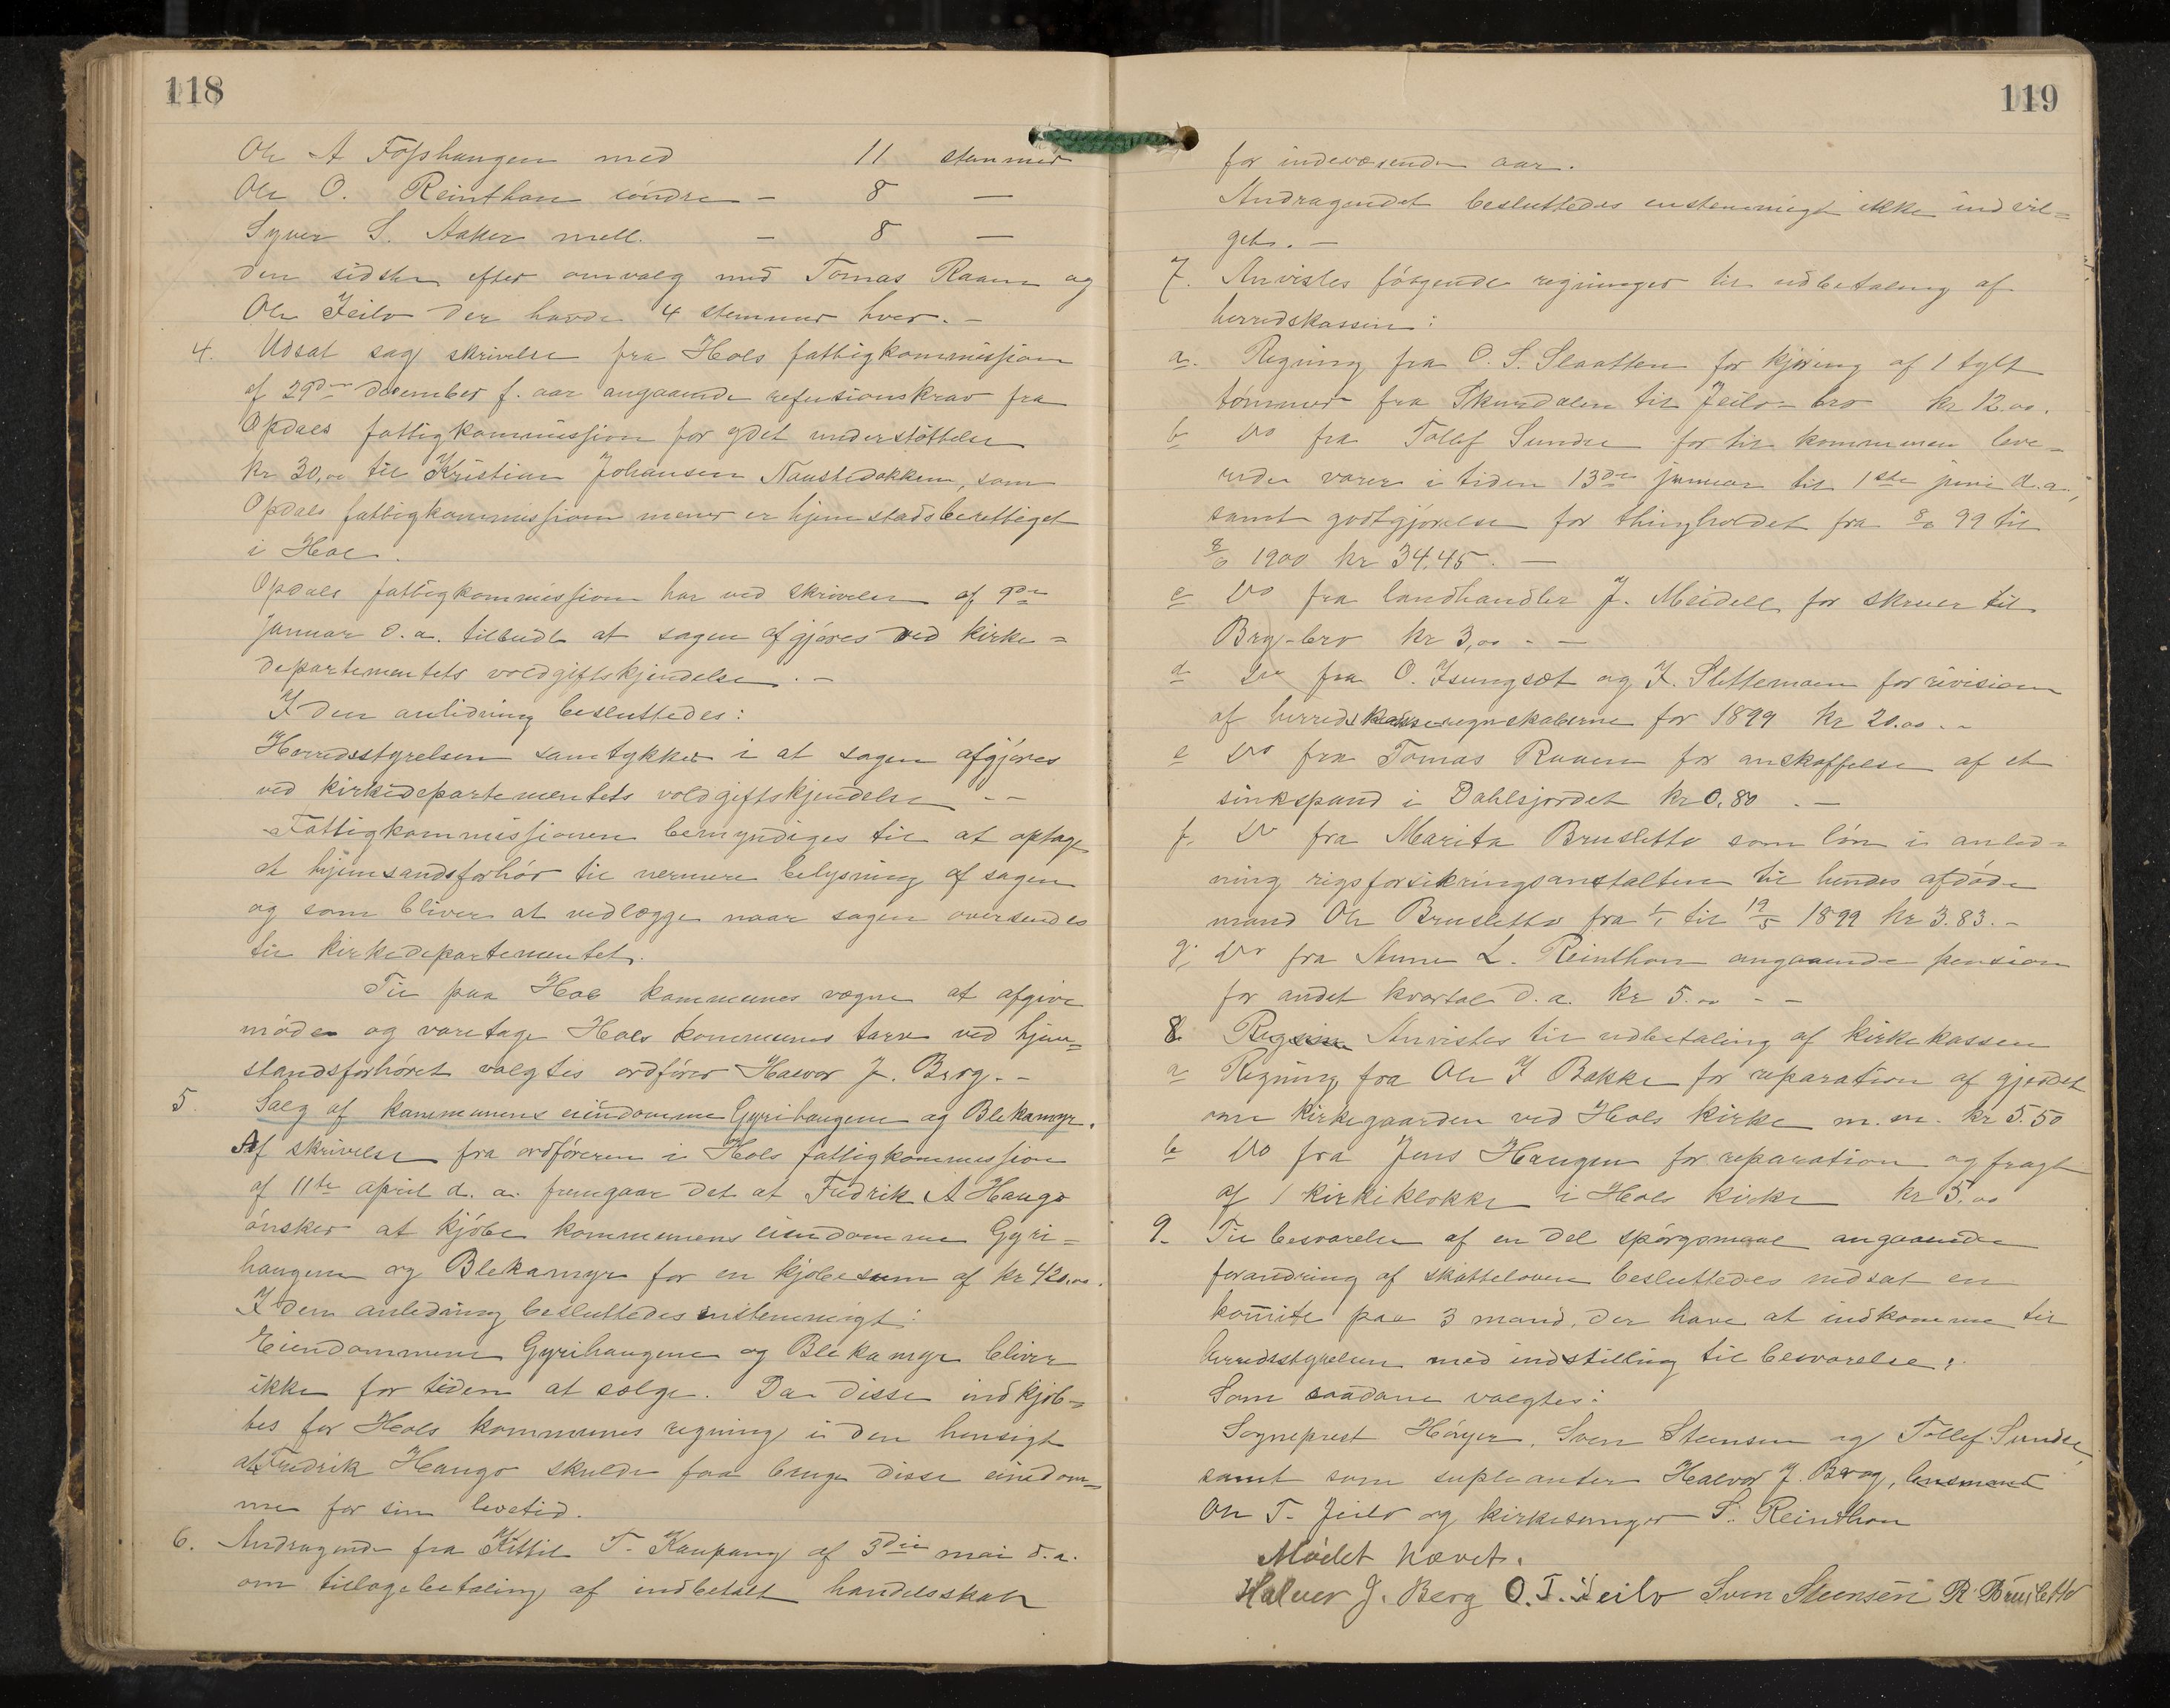 118
Ole A Fosshaugen med 11 stemmer
Ole O. Reinthon söndre – 8 —
Syver S. Aaker mell. – 8 —
den sidste efter omvalg med Tomas Raaen og
Ole Jeilo der havde 4 stemmer hver. –
4. Udsat sag skrivelse fra Hols fattigkommission
af 29de december f. aar angaaende refusionskrav fra
Opdals fattigkommission for ydet understöttelse
kr 30,00 til Kristian Johansen Naustedokken, som
Opdals fattigkommission mener er hjemstadsberettiget
i Hol.
Opdals fattigkommission har ved skrivelse af 9de
januar d.a. tilbudt at sagen afgjöres ved kirke=
departementets voldgiftskjendelse. –
I den anledning besluttedes:
Herredsstyrelsen samtykker i at sagen afgjöres
ved kirkedepartementets voldgiftskjendelse –
Fattigkommissionen bemyndiges til at optage
et hjemsandsforhör til nermere belysning af sagen
og som bliver at vedlægge naar sagen oversendes
til kirkedepartementet.
Til paa Hol kommunes vegne at afgive
möde og varetage Hols kommunes tarv ved hjem=
standsforhöret valgtes ordförer Halvor J. Berg. –
5. Salg af kommunens eiendomme Gyrihaugene og Blekamyr.
Af skrivelse fra ordföreren i Hols fattigkommission
af 11te april d. a. fremgaar det at Fredrik A Haugo
önsker at kjöbe kommunens eiendomme Gyri=
haugene og Blekamyr for en kjöbesum af kr 420.00.
I den anledning besluttedes enstemmigt:
Eiendommene Gyrihaugene og Blekamyr bliver
ikke for tiden at sælge. Da disse indkjöb=
tes for Hols kommunes regning i den hensigt
at Fredrik Haugo skulde faa bruge disse eiendom=
me for sin levetid.
6. Andragende fra Kittil T. Kaupang af 3die mai d.a.
om tilbagebetaling af indbetalt handelsskat
119
for indeværende aar.
Andragendet besluttedes enstemmigt ikke indvil=
get. –
7. Anvistes fölgende regninger til udbetaling af
herredskassen:
a. Regning fra O. S. Slaatten for kjöring af 1 tylt
tömmer fra Skurdalen til Jeilo-bro kr 12.00.
b do fra Tollef Sundre for til kommunen leve-
rede varer i tiden 13de januar til 1ste juni d.a.,
samt godtgjörelse for thingholdet fra 8/6 99 til
8/6 1900 kr 34.45. —
c do fra landhandler J. Meidell for skruer til
Brg-bro kr 3,00 - —
d do fra O. Isungset og K. Slettemoen for revision
af herredskasseregnskaberne for 1899 kr 20.00. –
e do fra Tomas Raaen for anskaffelse af et
sinkspand i Dahlsjordet kr 0.80. —
f. do fra Marita Brusletto som lön i anled=
ning rigsforsikringsanstalten til hendes afdöde
mand Ole Brusletto fra 1/1 til 19/5 1899 kr 3.83. –
g. do fra Anne L. Reinthon angaaende pension
for andet kvartal d.a. kr 5.00 - –
8. Anvistes til udbetaling af kirkekassen
a Regning fra Ole I Bakke for reparation af gjerdet
om kirkegaarden ved Hols kirke m.m. kr 5.50
b do fra Jens Haugen for reparation og fragt
af 1 kirkeklokke i Hols kirke kr 5.00
9. Til besvarelse af en del spörgsmaal angaaende
forandring af skatteloven besluttedes nedsat en
komite paa 3 mand, der have at indkomme til
herredsstyrelsen med indstilling til besvarelse.
Som saadane valgtes:
Sogneprest Höyer, Sven Steensen og Tollef Sundre,
samt som supleanter Halvor J. Berg, lensmand
Ole T. Jeilo og kirkesanger S. Reinthon
Mödet hævet.
Halvor J. Berg O. T. Jeilo Sven Steensen R. Brusletto